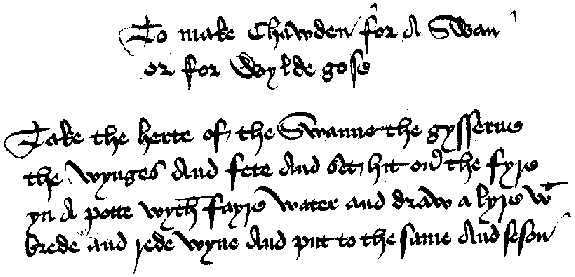 To make Chawden for A Swan
or for Wylde gose
Take the herte of the Swanne the gysserne
the wynges And fete And set hit on the fyre
yn A potte wyth fayre water and draw a lyre wt
brede and rede wyne And put to the same And seson